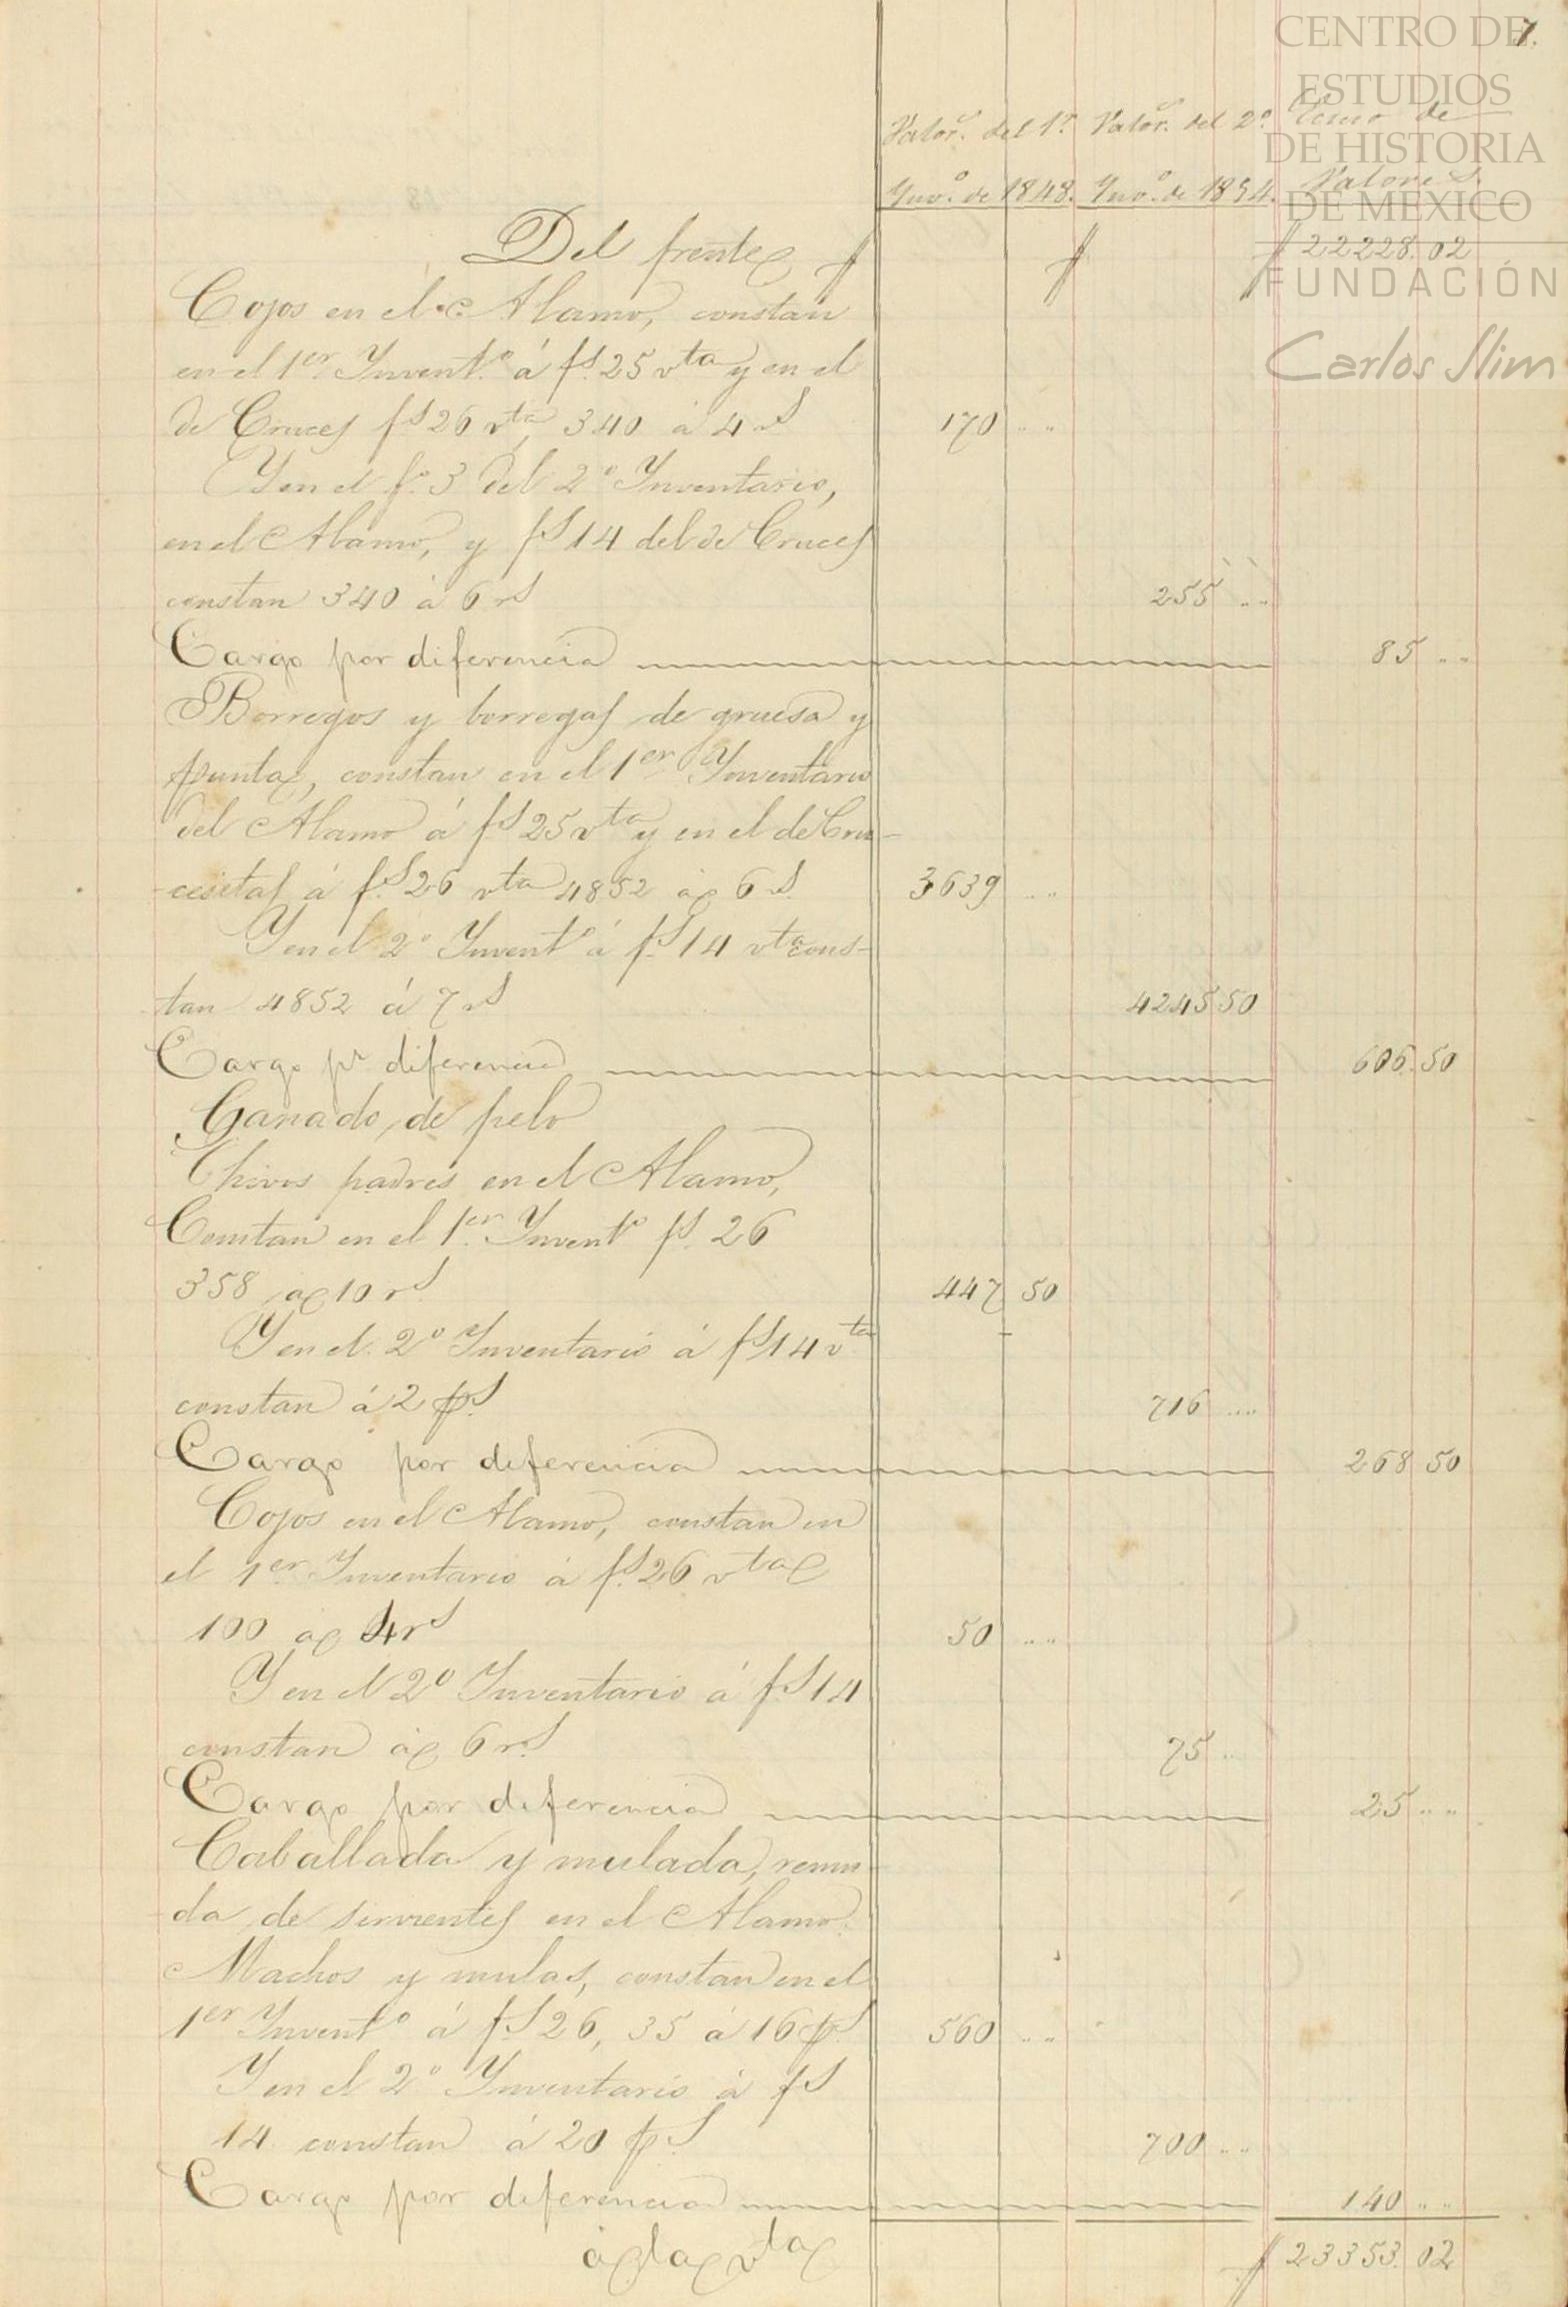 7.
CENTRO DE
ESTUDIOS
DE HISTORIA
DE MEXICO
FUNDACIÓN
Carlos Slim
Valor.s del 1.º Valor.s del 2.º de
Inv.º de 1848. Inv.º de 1854. Valores.
Del frente $ $ $ 22228. 02
Cojos en el Alamo, constan
en el 1er Invent.º á fs. 25 vta y en el
de Cruces fs 26 vta, 340 á 4 rs 170 .. ..
Y en el fº 3 del 2º Inventario,
en el Alamo, y fs 14 del de Cruces
constan 340 á 6 rs 255 .. ..
Cargo por diferencia 85 .. ..
Borregos y borregas de gruesa y
punta, constan en el 1er Inventario
del Alamo á fs 25 vta y en el de Cru-
cesitas á fs. 26 vta 4852 á 6 rs. 3639 .. ..
Y en el 2º Inventº á fs. 14 vta cons-
tan 4852 á 7 rs 4245 50
Cargo pr diferencia 606. 50
Ganado de pelo
Chivos padres en el Alamo,
Constan en el 1er Inventº fs. 26
358 á 10 rs. 447 50
Y en el 2º Inventario á fs 14 vta
constan á 2 ps. 716 ....
Cargo por diferencia 268 50
Cojos en el Alamo, constan en
el 1er Inventario á fs. 26 vta
100 á 4 rs 50 .. ..
Y en el 2º Inventario á fs. 14
constan á 6 rs. 75 ..
Cargo por diferencia 25 .. ..
Caballada y mulada, remu-
da de sirvientes en el Alamo.
Machos y mulas, constan en el
1er Inventº á fs. 26, 35 á 16 ps. 560 .. ..
Y en el 2º Inventario á fs
14 constan á 20 ps. 700 .. ..
Cargo por diferencia 140 .. ..
á la vta $ 23353. 02